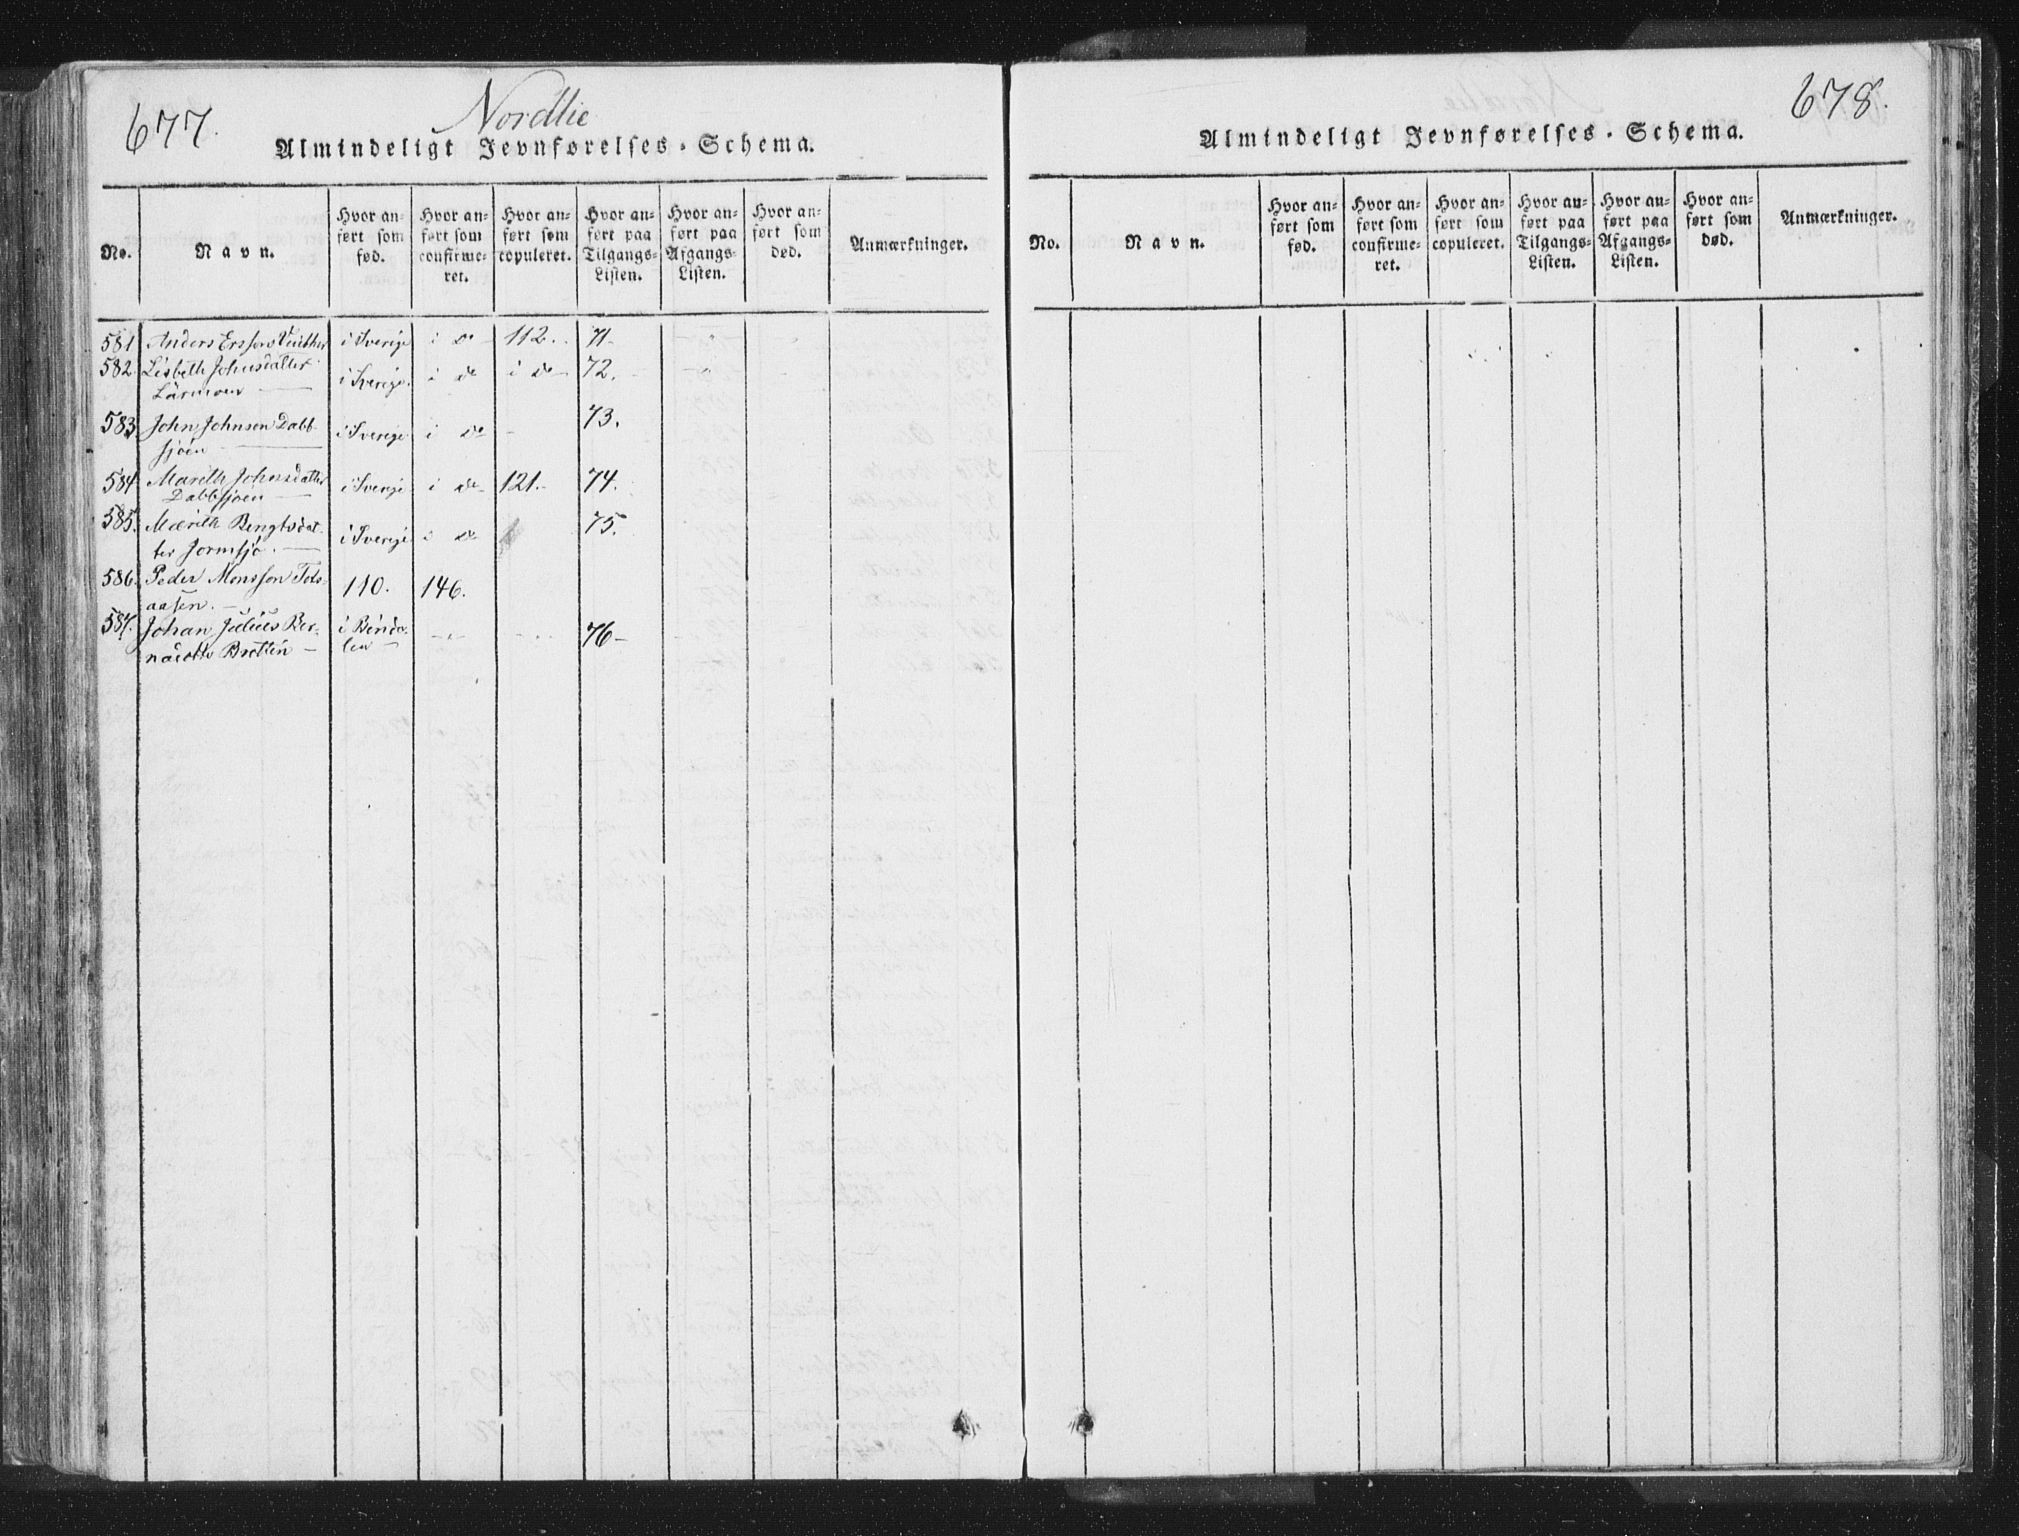 677.
Nordlie
Almindeligt Jevnførelses-Schema.
No.
Navn.
Hvor anført som fød.
Hvor anført som confirmeret.
Hvor anført som copuleret.
Hvor anført paa Tilgangs-Listen.
Hvor anført paa Afgangs-Listen.
Hvor anført som død.
Anmærkninger.
581 Anders Ersson i Sverige i do 112. 71
582 Lisbeth Johnsdatter i Sverige i do i do 72.
583. John Johnsen Dabbsjöen i Sverige i do 73.
584 Marith Johnsdatter Dabbsjöen i Sverige i do 121. 74.
585. Marith Bengtsdatter Jormsjö. i Sverige i do 75.
586. Peder Monsson Totsaasen. 110. 146.
587. Johan Julius Bernadotte Brattin i Bindalen 76
678.
Almindeligt Jevnførelses-Schema.
No.
Navn.
Hvor anført som fød.
Hvor anført som confirmeret.
Hvor anført som copuleret.
Hvor anført paa Tilgangs-Listen.
Hvor anført paa Afgangs-Listen.
Hvor anført som død.
Anmærkninger.